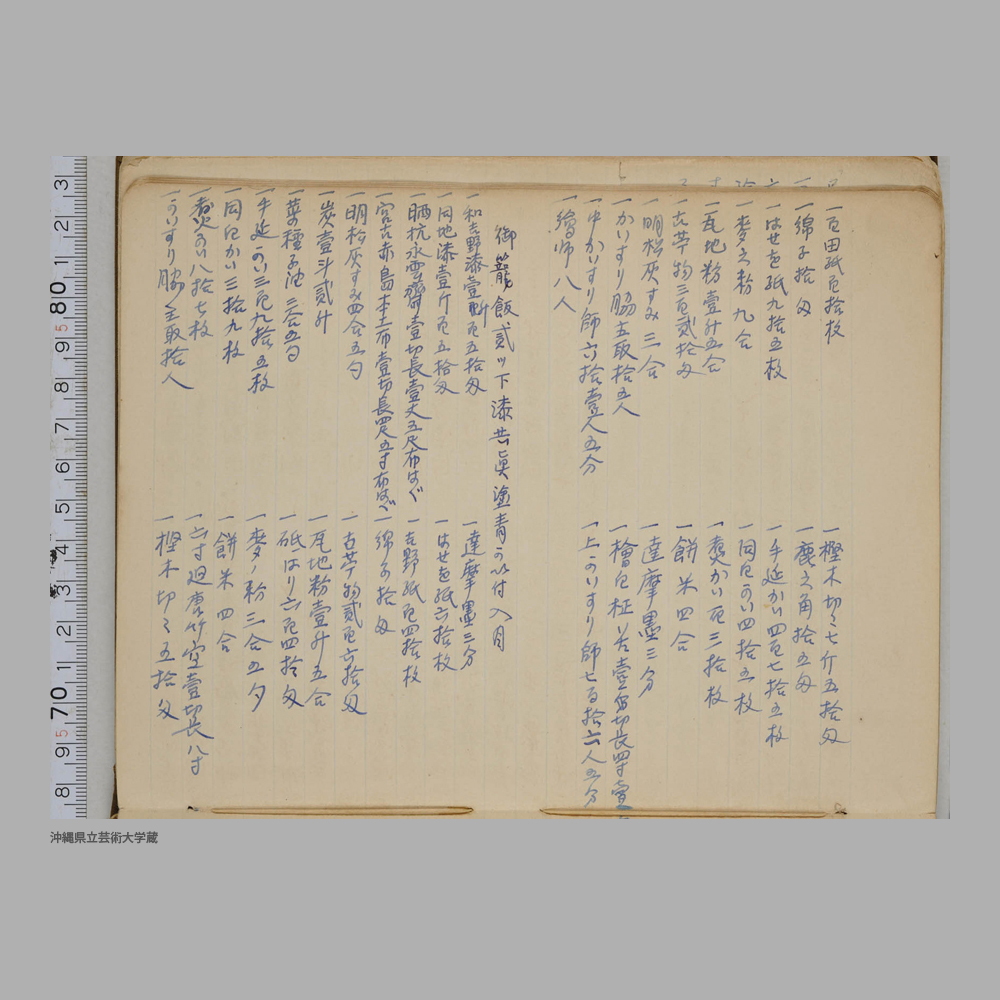 一百田紙百拾枚
一綿子拾匁
一はせを紙九拾五枚
一麥之粉九合
一瓦地粉壹升五合
一古苧物三百貳拾匁
一明松灰すみ三合
一かいすり脇主取拾五人
一中かいすり師六拾壹人五分
一繪師八人
一樫木切〻七斤五拾匁
一鹿之角拾五匁
一手延かい四百七拾五枚
一同にのい四拾五枚
一煑かい百三拾枚
一餅米四合
一達摩墨三分
一檜
一上かいすり師七百拾六人五分
御籠飯貳ッ下漆共眞塗青かい付入目
一和吉野漆壹斤百五拾匁
一同地漆壹斤百五拾匁
一晒杭永雲齋壹切長壹丈五尺布はゞ
一宮古赤島本上布壹切長四尺五寸布はゞ
一明松灰すみ四合五勺
一炭壹斗貳升
一菜種子油三合五勺
一手延かい三百九拾五枚
一同にかい三拾九枚
一煑かい八拾七枚
一かいすり脇主取拾人
一達摩墨三分
一はせを紙六拾枚
一吉野紙百四拾枚
一綿子拾匁
一古苧物貳百六拾匁
一瓦地粉壹升五合
一砥はり六百四拾匁
一麥ノ粉三合五夕
一餅米四合
一六寸廻唐竹壹切長八寸
一樫木切〻五拾匁
3
2
1
80
9
8
7
6
5
4
3
2
1
70
9
8
5
5
沖縄県立芸術大学蔵